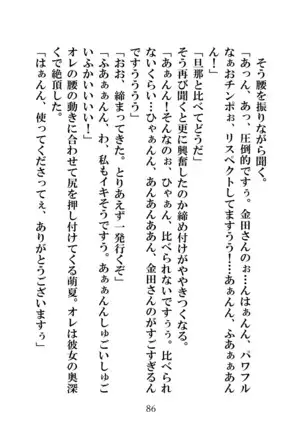 そう腰を振りながら聞く。
「あっん、あっ、圧倒的ですぅ。金田さんのぉ…んはぁん、パワフル
なぁおチンポぉ、リスペクトしてますぅう!…あぁんん、ふあぁぁあん
「旦那と比べてどうだ」
そう再び聞くと更に興奮したのか締め付けがややきつくなる。
「あぁんん!そんなのぉ、ひゃぁん、比べられないですぅぅ。比べられ
ないくらい…ひゃぁんん、あんあんああん、金田さんのがすごすぎるん
ですぅううう」
「おお、締まってきた。とりあえず一発行くぞ」
「ふあぁぁんん、わ、私もイキそうですぅ。あぁぁんんしゅごいしゅご
いふかいいいい!」
オレの腰の動きに合わせて尻を押し付けてくる萌夏。オレは彼女の奥深
くで絶頂した。
「はぁんん、使ってくださってぇ、ありがとうございますぅ」
86